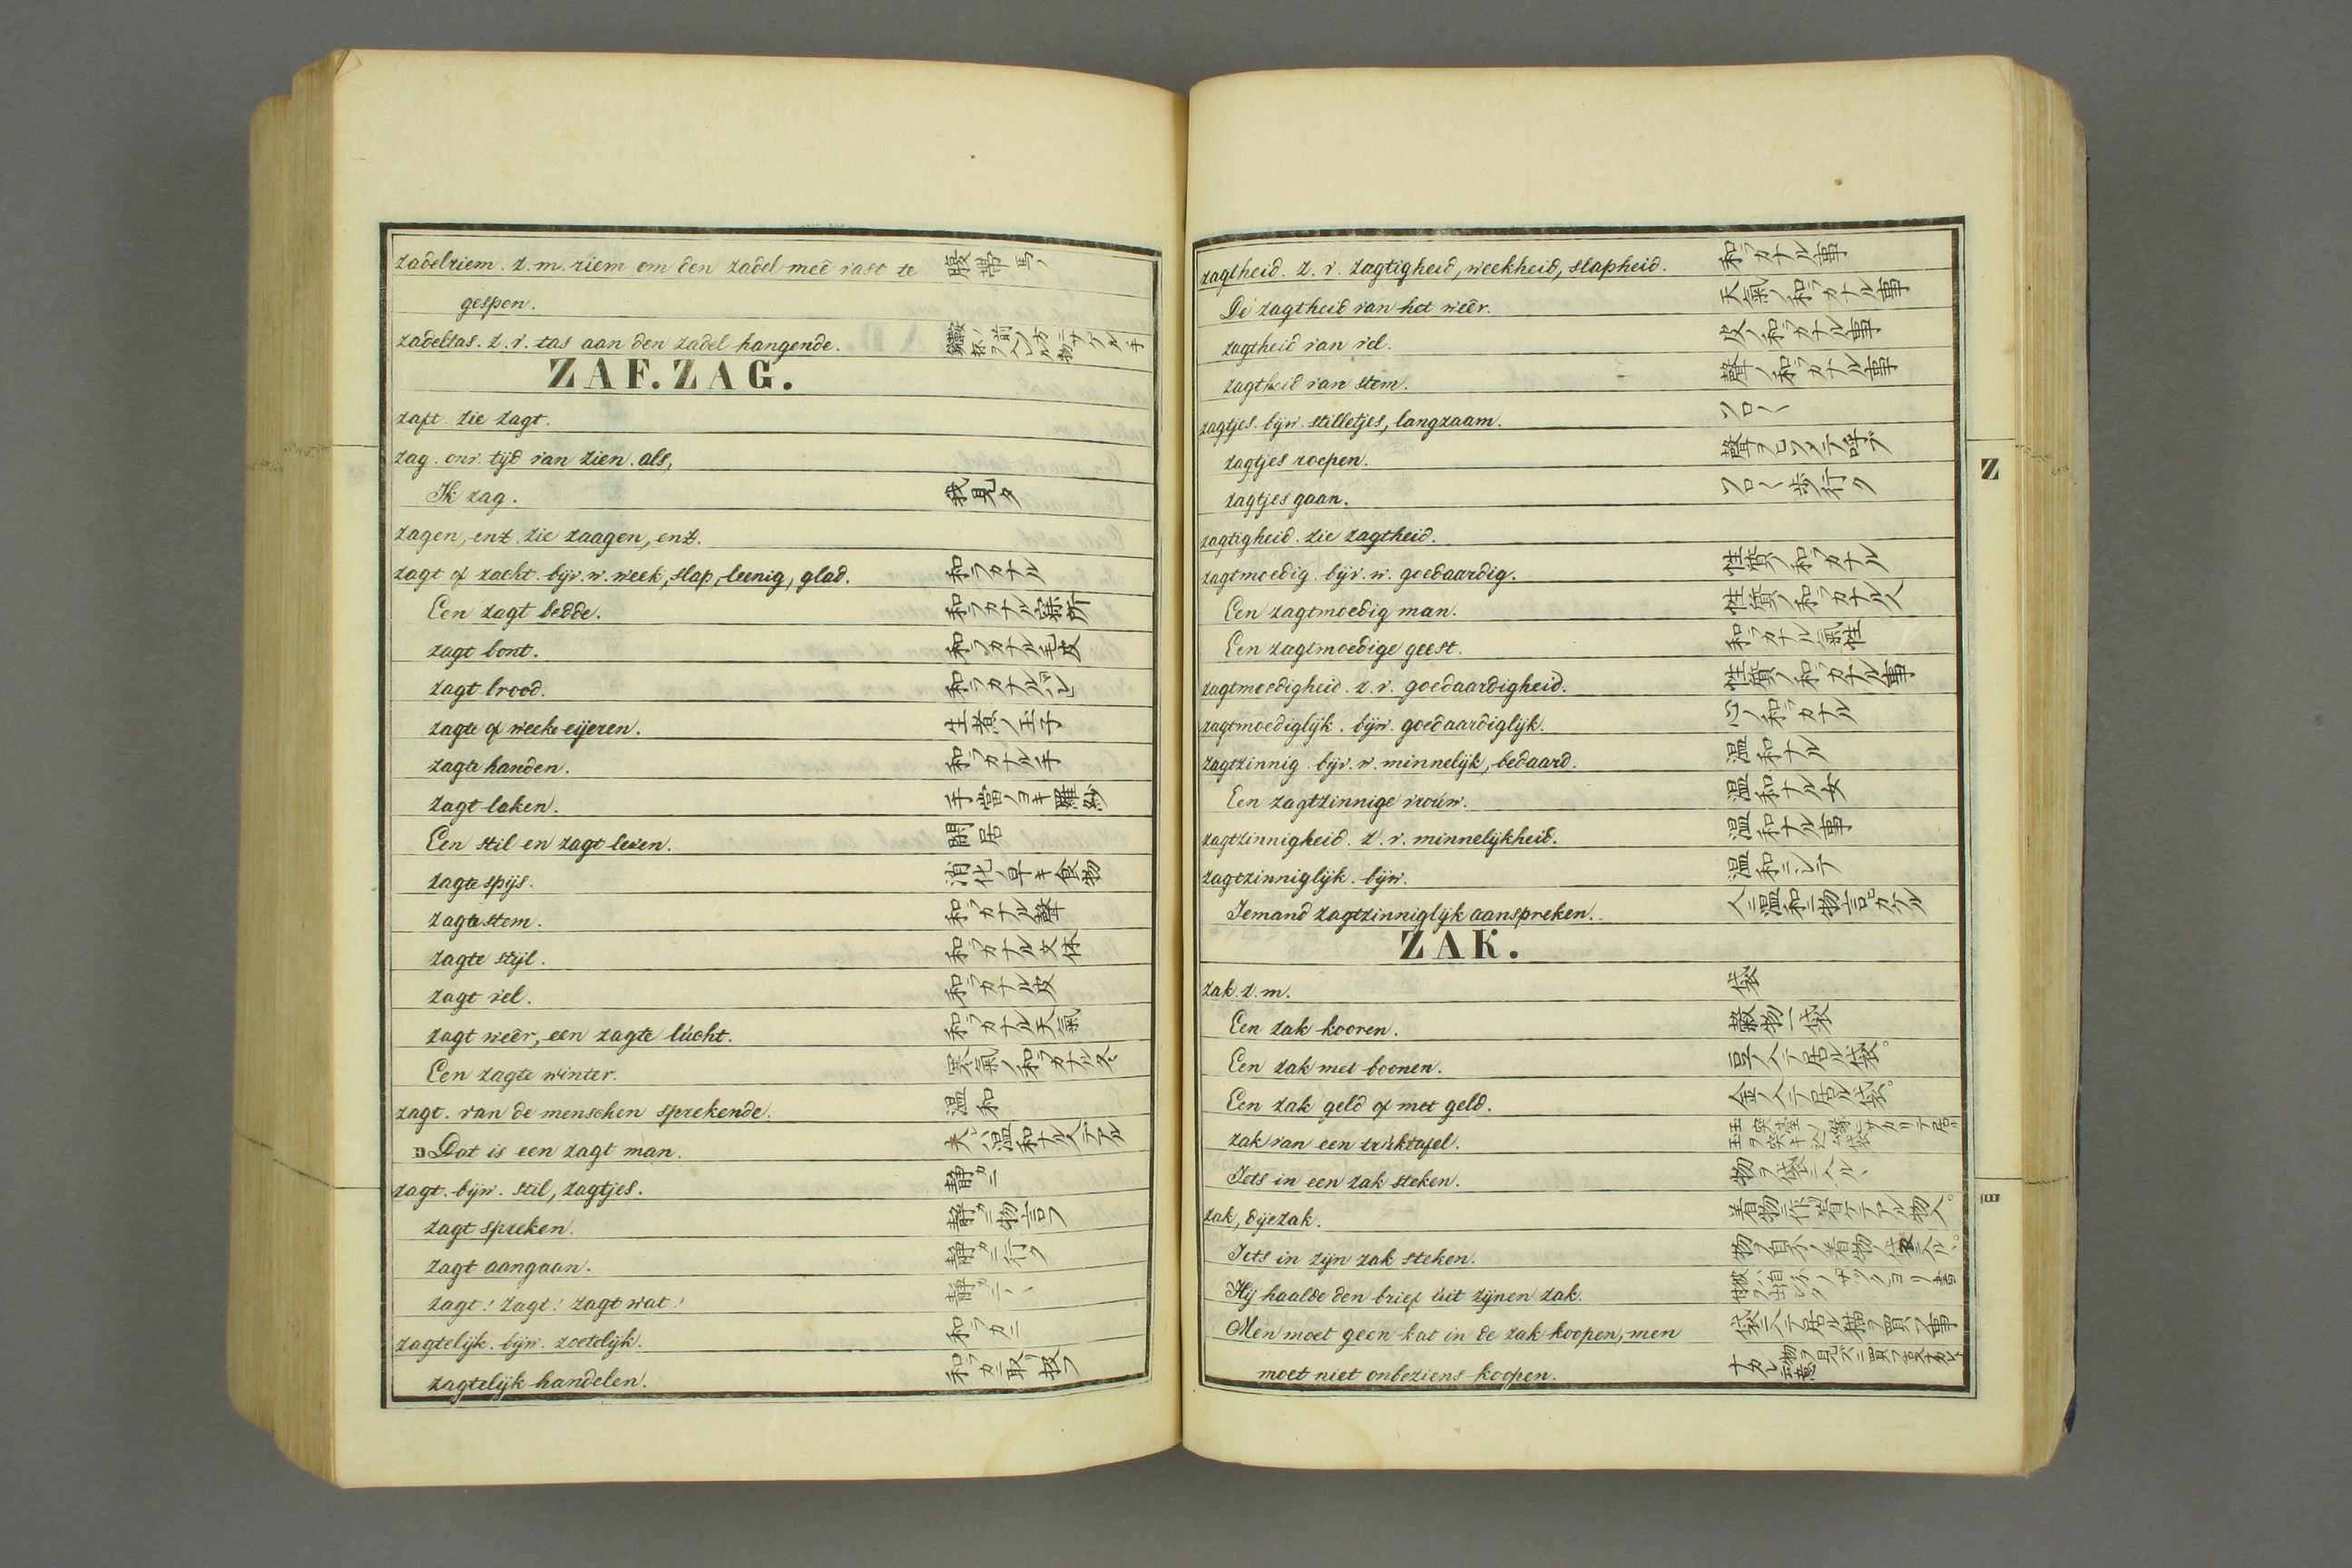 zadelriem. z. m. riem om den zadel meê vast te 腹帯馬ノ
gespen.
zadeltas. z. v. tas aan den zadel hangende.
ZAF. ZAG.
zaft zie zagt.
zag. onv. tijd van zien. als,
Ik zag. 我見タ
zagen, enz. zie zaagen, enz.
zagt of zacht. bijv. w. week, slap, leenig, glad. 和ラカナル
Een zagt bedde. 和ラカナル寐所
zagt bont. 和ラカナル毛皮
zagt brood. 和ラカナル
zagte of weeke eijeren. 生煮ノ玉子
zagte handen. 和ラカナル手
zagt laken. 手當ノヨキ羅紗
Een stil en zagt leven. 閑居
zagte spijs. 消化ノ早キ食物
zagte stem. 和ラカナル聲
zagte stijl. 和ラカナル文体
zagt vel. 和ラカナル皮
zagt weêr, een zagte lucht. 和ラカナル天氣
Een zagte winter. 寒氣ノ和ラカナル冬
zagt. van de menschen sprekende. 温和
Dat is een zagt man. 夫ハ温和ナル人デアル
zagt. bijw. stil, zagtjes. 静カニ
zagt spreken. 静カニ物言フ
zagt aangaan. 静カニ行ク
zagt! zagt! zagt wat! 静カニ、、
zagtelijk. bijw. zoetelijk. 和ラカニ
zagtelijk handelen. 和ラカニ取リ扱フ
zagtheid. z. v. zagtigheid, weekheid, slapheid. 和ラカナル事
De zagtheid van het weêr. 天氣ノ和ラカナル事
zagtheid van vel. 皮ノ和ラカナル事
zagtheid van stem. 聲ノ和ラカナル事
zagtjes. bijw. stilletjes, langzaam. ソロ〱
zagtjes roepen. 聲ヲヒソメテ呼ブ
zagtjes gaan. ソロ〱歩行ク
zagtigheid. zie zagtheid.
zagtmoedig. bijv. w. goedaardig. 性質ノ和ラカナル
Een zagtmoedig man. 性質ノ和ラカナル人
Een zagtmoedige geest. 和ラカナル氣性
zagtmoedigheid. z. v. goedaardigheid. 性質ノ和ラカナル事
zagtmoediglijk. bijw. goedaardiglijk. 心ノ和ラカナル
zagtzinnig. bijv. w. minnelijk, bedaard. 温和ナル
Een zagtzinnige vrouw. 温和ナル女
zagtzinnigheid. z. v. minnelijkheid. 温和ナル事
zagtzinniglijk. bijw. 温和ニシテ
Iemand zagtzinniglijk aanspreken. 人ニ温和ニ物言ヒカケル
ZAK.
zak. z. m. 袋
Een zak kooren. 穀物一袋
Een zak met boonen. 豆ノ入テ居ル袋。
Een zak geld of met geld. 金ノ入テ居ル袋。
zak van een truktafel.
Iets in een zak steken. 物ヲ袋ニ入ル、
zak, dijezak. 着物ニ作リ着ケテアル物入。
Iets in zijn zak steken.
Hij haalde den brief uit zijnen zak.
Men moet geen kat in de zak koopen, men 袋ニ入テ居ル猫ヲ買フ事
moet niet onbeziens koopen. ナカレ
Z